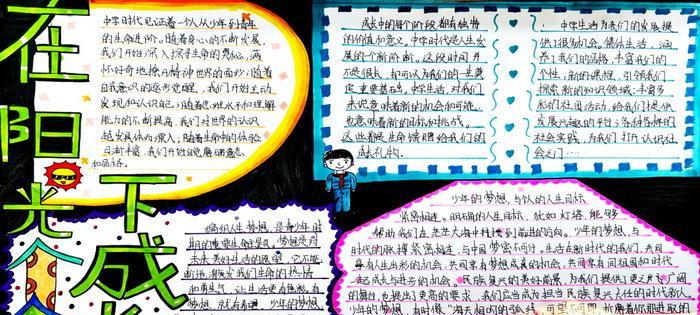 在阳光
下成长
中学时代见证着一个人从少年到青年
的生命进阶。随着身心的不断发展,
我们开始深入探寻生命的奥秘,满
怀好奇地撩开精神世界的面纱;随着
自我意识的逐步觉醒,我们开始主动
发现和认识自己;随着思维水平和理解
能力的不断提高,我们对世界的认识
越发具体而深入;随着生命中的体验
日渐丰富,我们开始
和品格。
成长中的每个阶段都有独特
的价值和意义。中学时代是人生发
展的一个新阶段。这段时间并
不是很长,却可以为我们的一生奠
定重要基础。中学生活,对我们
来说意味着新的机会和可能,
也意味着新的目标和挑战。
这些都是生命馈赠给我们的
成长礼物。
中学生活为我们的发展提
供了很多机会。集体生活,涵
养了我们的品格,丰富我们的
个性;新的课程,引领我们
探索新的知识领域;丰富多
彩的社团活动,给我们提供
发展兴趣的平台;各种各样的
社会实践,为我们打开认识社
会之门……
编织人生梦想,是青少年时
期的重要生命主题。梦想是对
未来美好生活的愿望,它不能
断激发我们生命的热情
和勇气,让生活更有色彩。有
梦想,就有希望。少年的梦想
少年的梦想,与个人的人生目标
紧密相连。明确的人生目标,犹如灯塔,能够
帮助我们在茫茫大海中找到前进的方向。少年的梦想,与
时代的脉搏紧密相连,与中国梦密不可分。生活在新时代的我们,共同
享有人生出彩的机会,共同享有梦想成真的机会,共同享有同祖国和时代
一起成长与进步的机会。民族复兴的美好前景,为我们提供了更广阔
的舞台,也提出了更高的要求,我们应当成为担当民族复兴大任的时代新人。